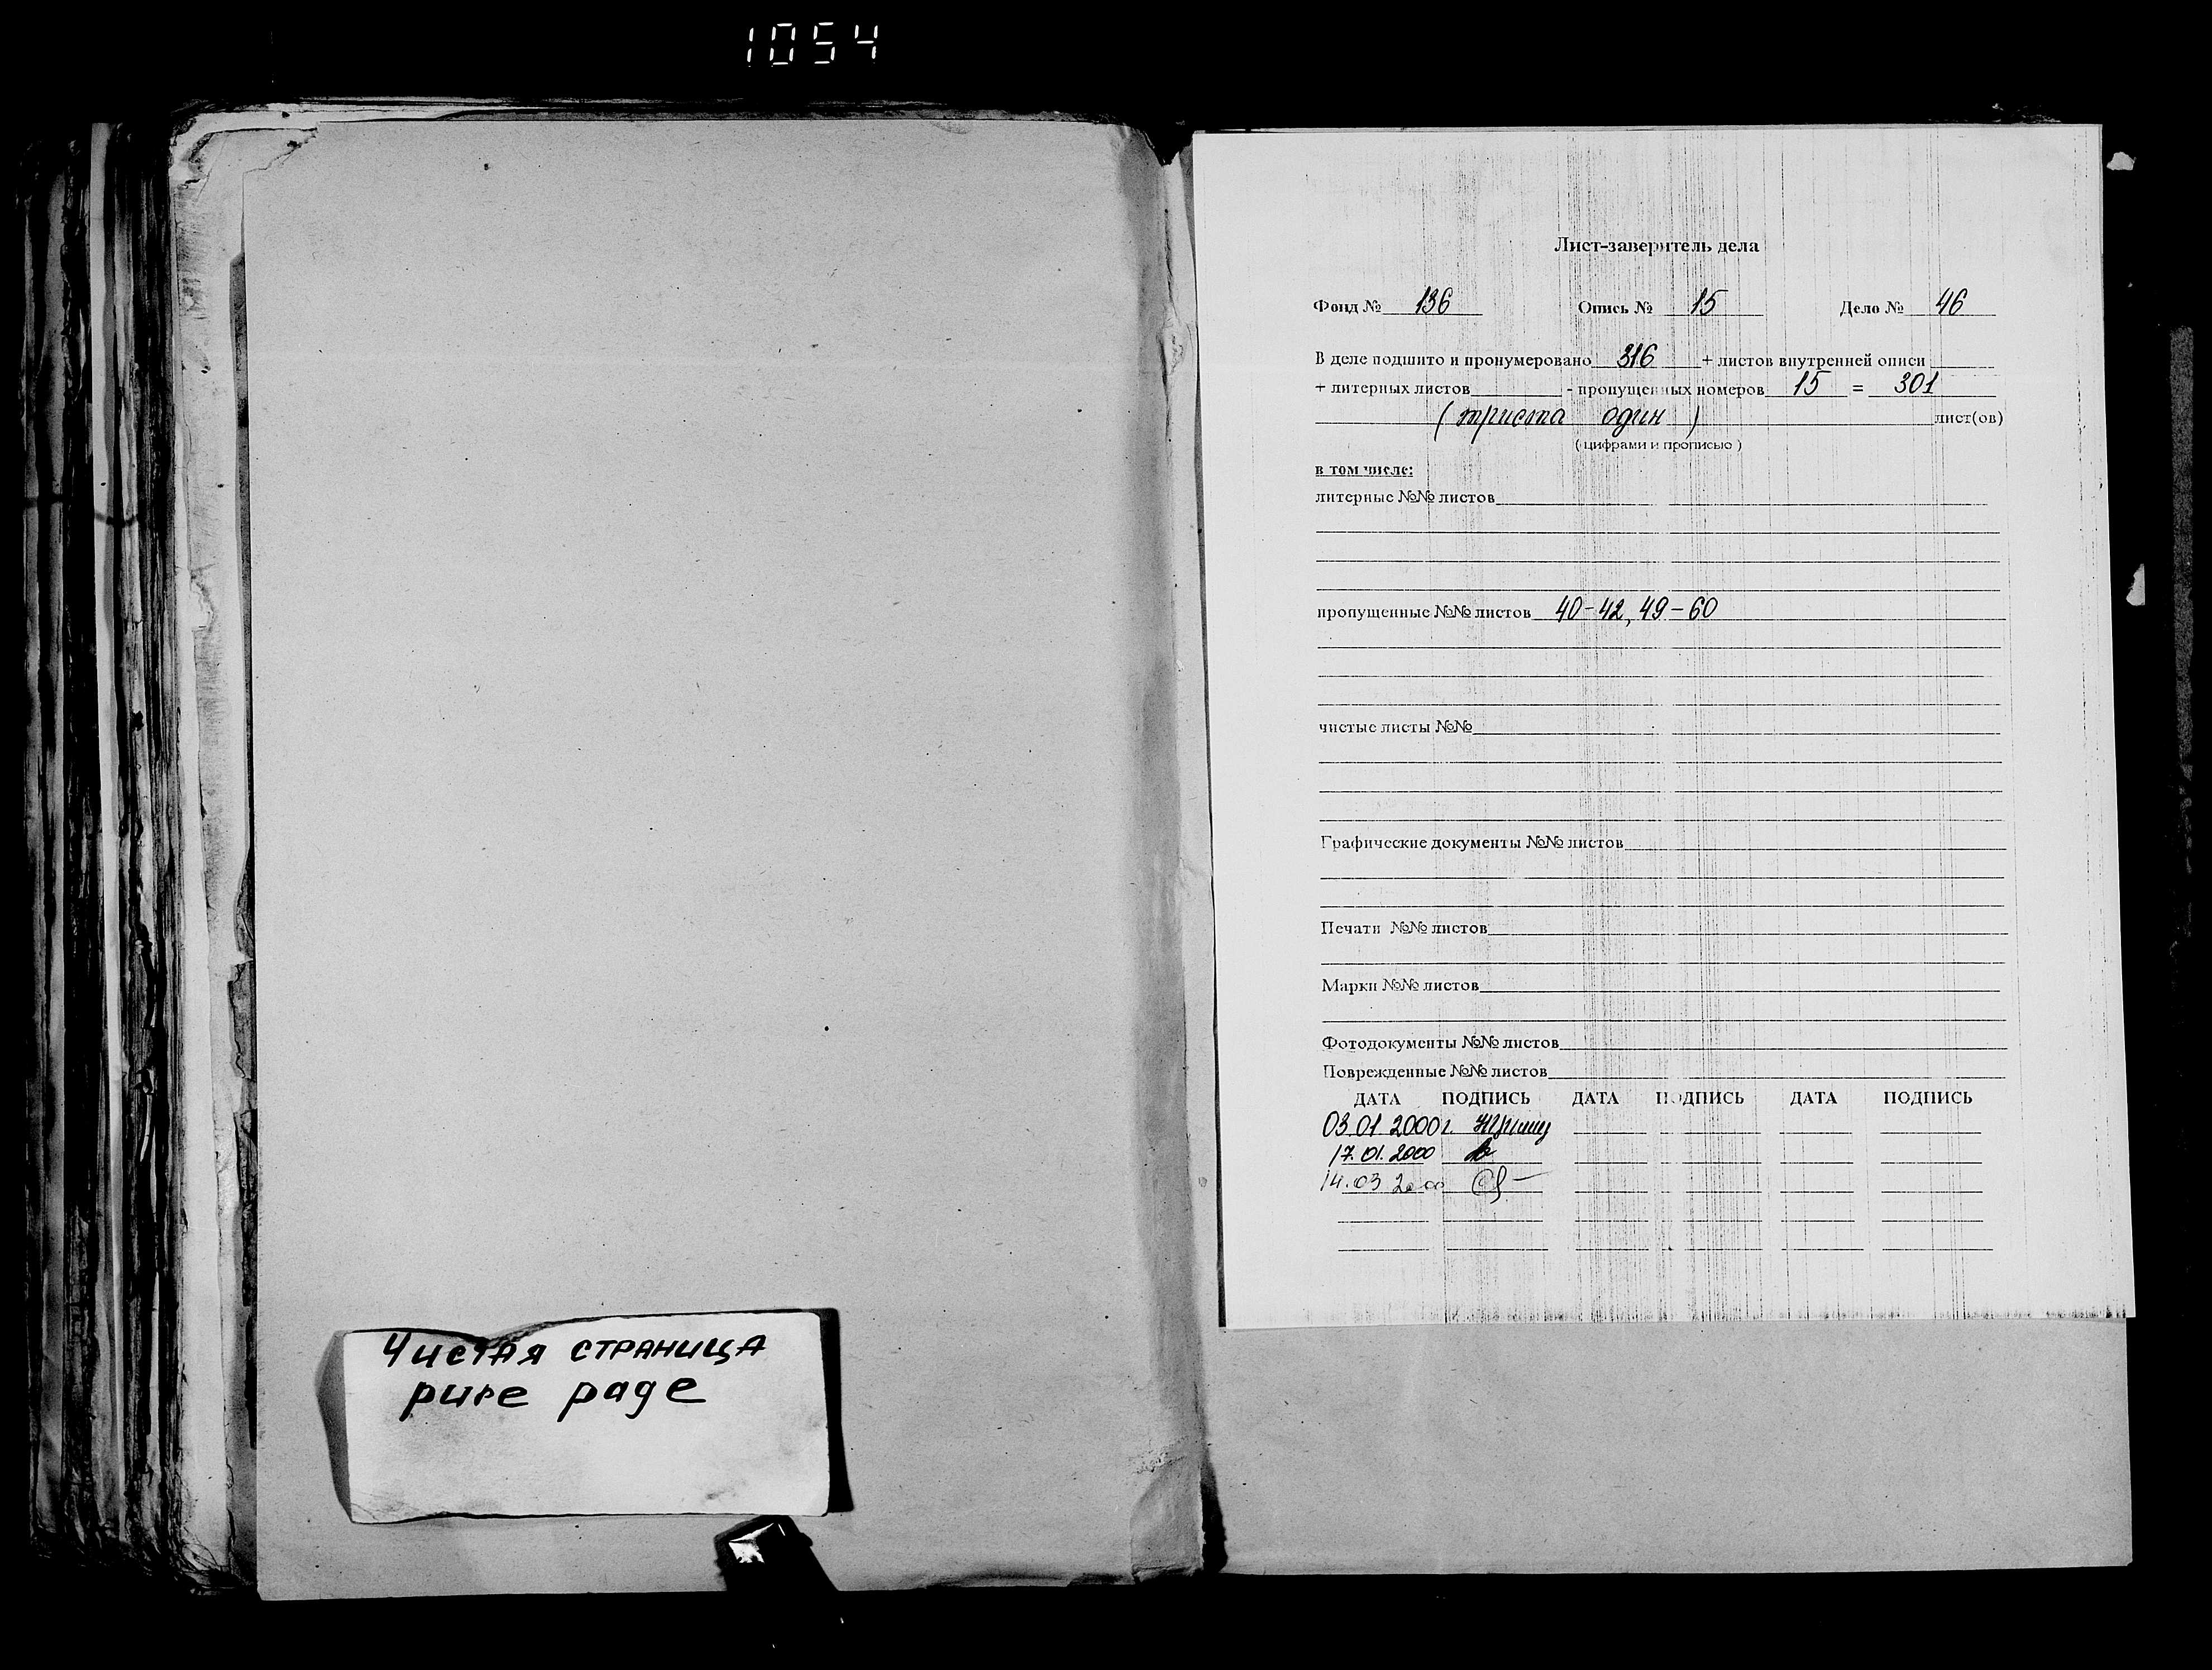 1054
Чистая страница
pure page
Лист-заверитель дела
Фонд № 136 Опись № 15 Дело № 46
В деле подшито и пронумеровано 316 + листов внутренней описи
+ литерных листов - пропущенных номеров 15 = 301
( триста один ) лист(ов)
( цифрами и прописью )
в том числе:
литерные №№ листов
пропущенные №№ листов 40-42, 49-60
чистые листы №№
Графические документы №№ листов
Печати №№ листов
Марки №№ листов
Фотодокументы №№ листов
Поврежденные №№ листов
ДАТА ПОДПИСЬ ДАТА ПОДПИСЬ ДАТА ПОДПИСЬ
03.01 2000г.
17.01.2000
14.03 2000